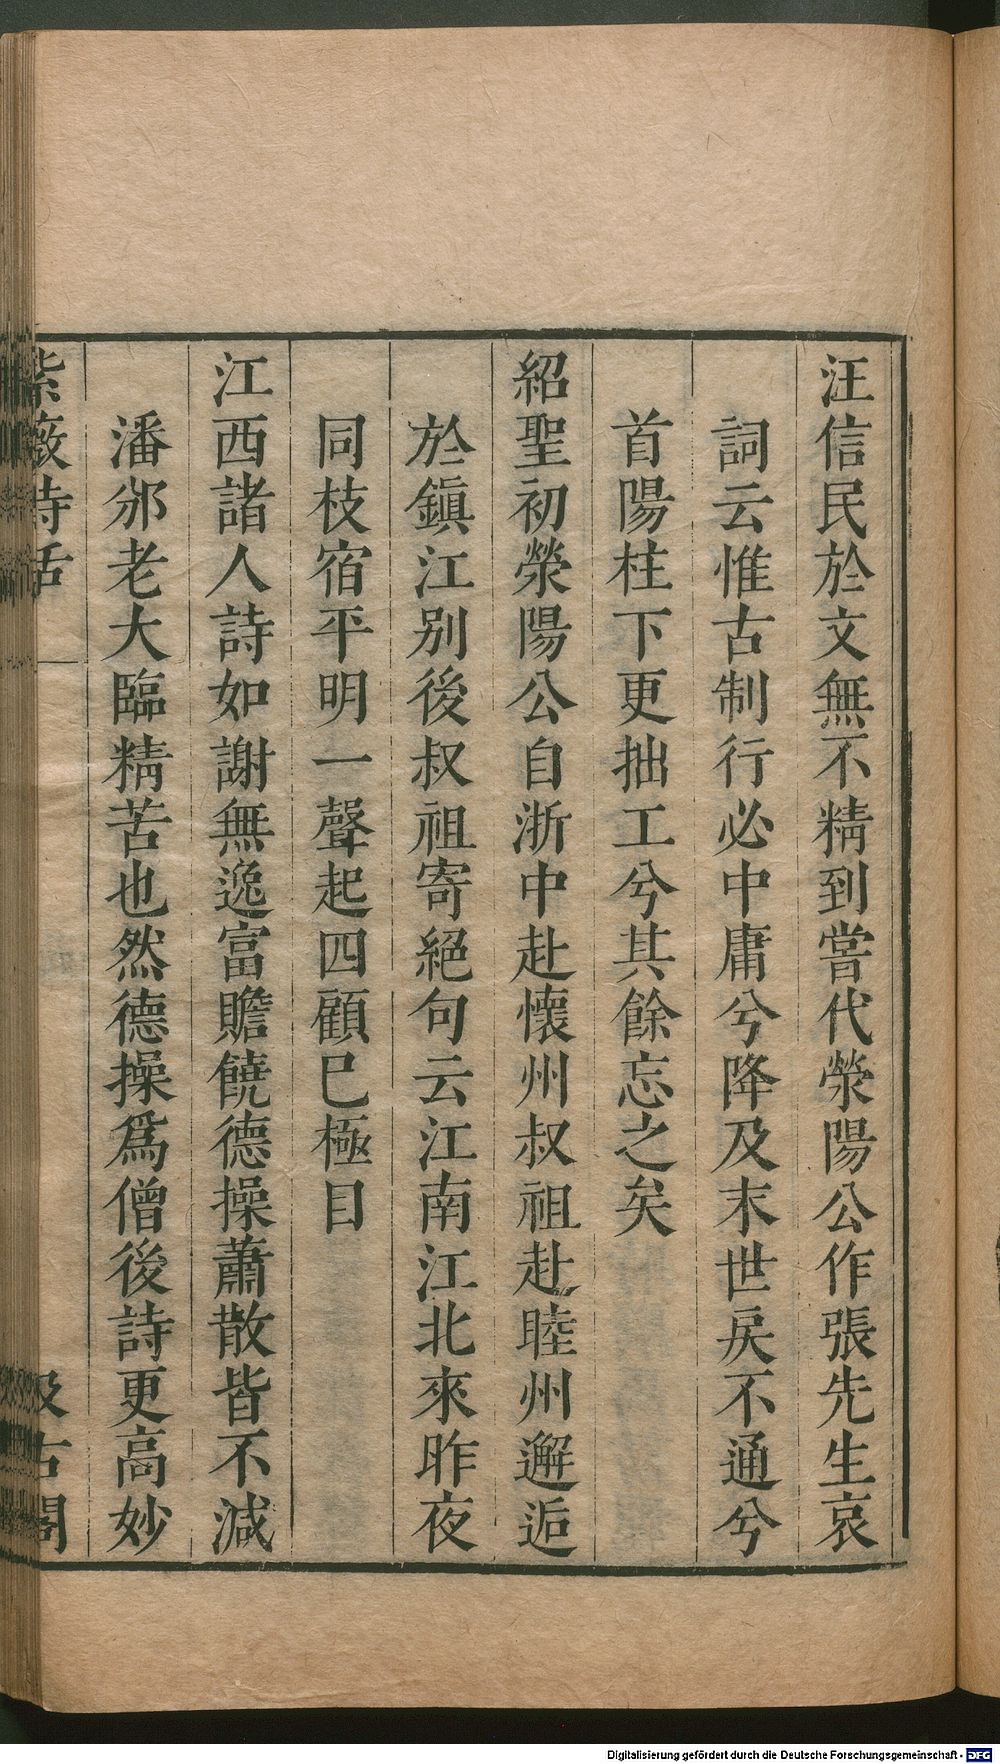 汪信民於文無不精到嘗代滎陽公作張先生哀
詞云惟古制行必中庸兮降及末世戾不通兮
首陽柱下更拙工兮其餘忘之矣
紹聖初滎陽公自浙中赴懷州叔祖赴睦州邂逅
於鎮江別後叔祖寄絕句云江南江北來昨夜
同枝宿平明一聲起四顧已極目
江西諸人詩如謝無逸富贍饒德操蕭散皆不減
潘邠老大臨精苦也然德操爲僧後詩更高妙
紫薇詩話 汲古閣
Digitalisierung gefördert durch die Deutsche Forschungsgemeinschaft - DFG